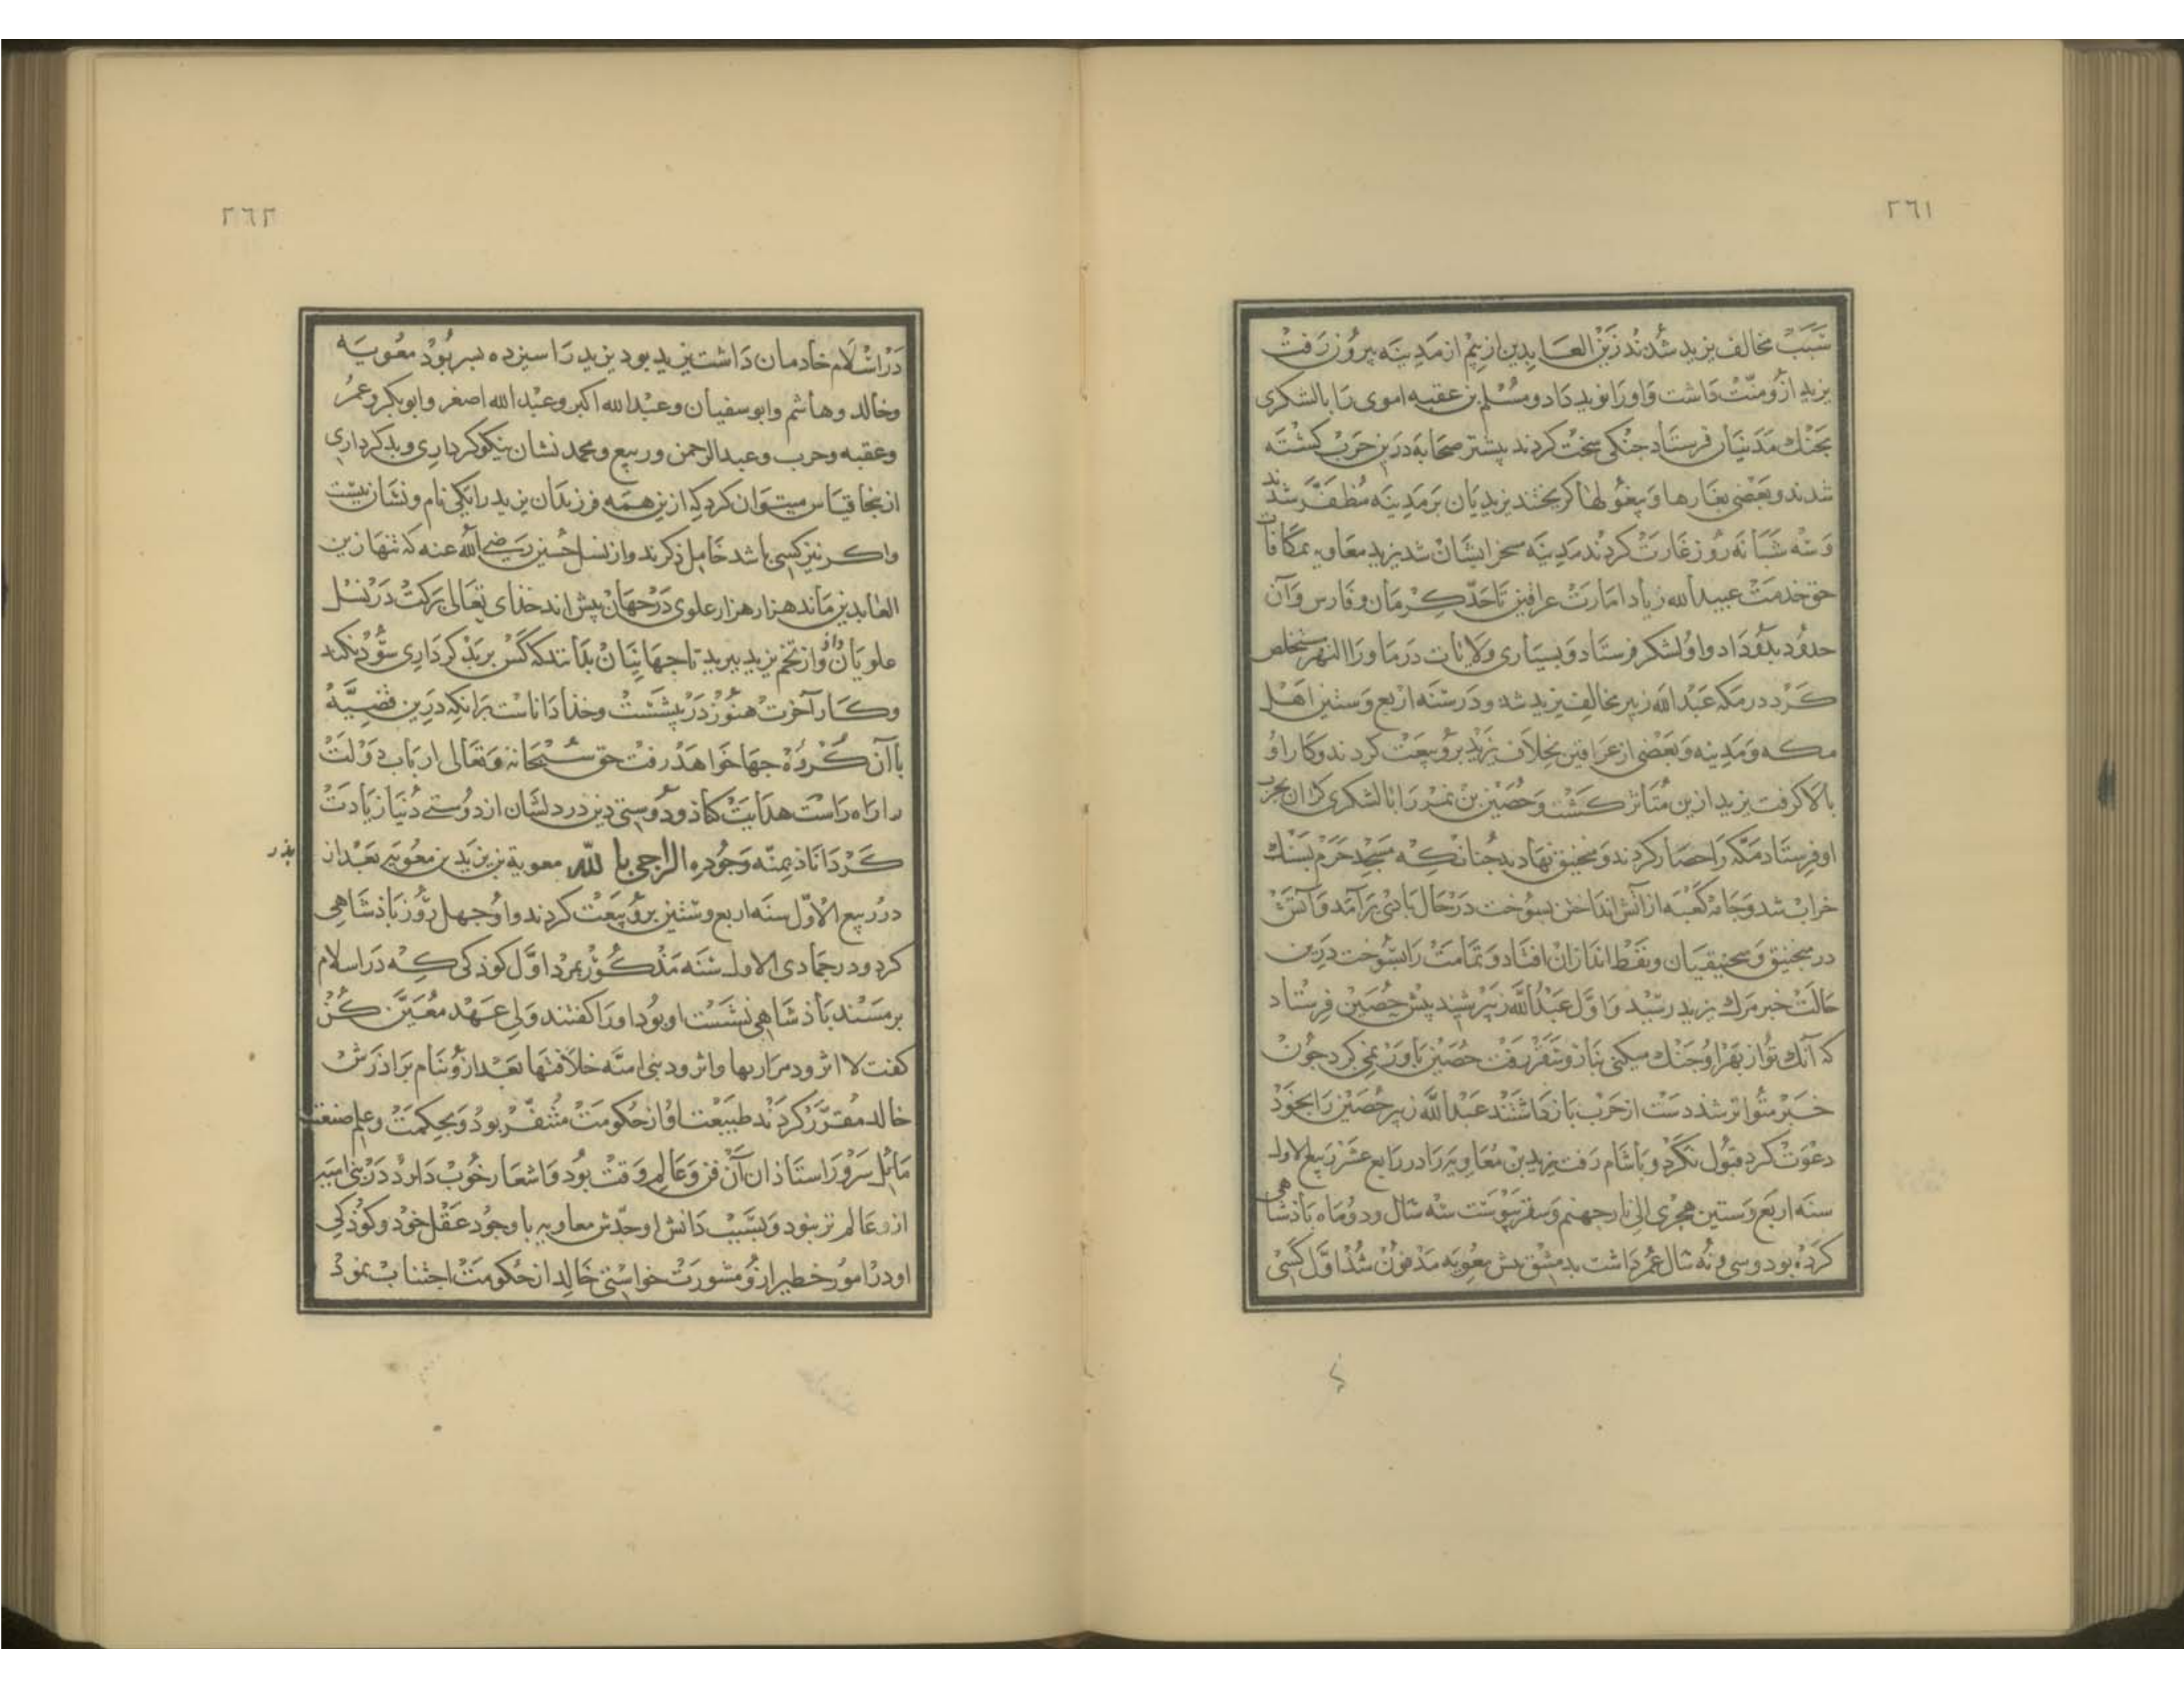 ٢٦١
سَبَبْ مخالف یزید شُدند زَیْن العَابِدین از بیم از مَدِینَه بیرُوز رَفتْ
یزید ازو منّتْ دَاشت وَاورَا نوید دَاد و مُسْلم بن عقبه اموی رَا با لشکری
بجَنْك مَدَنیَان فرستَاد جنکی سَخْت کردند بیشتر صحَابه دَرین حَربْ کشْتَه
شدند و بَعْضی بغَارها وَ بیغُولها کریختند یزیدیَان بَر مَدِینَه مُظفَّر شُدند
وَ سه شَبَانَه رُوز غَارَتْ کردند مَدِینَه مسخر ایشان شد یزید معاویه بمکافات
حق خدمتْ عبیدالله زیاد امَارَتْ عراقین تَا حَدّ کِرمَان و فَارس وَ آن
حدُود بدُو دَاد و او لشکر فرستَاد وَ بسیَاری وَلایَات در ماوراالنهر مستخلص
کَرْد در مَکه عَبْدالله زبیر مخالفِ یزید شد و دَر سَنَه اربَع وَ ستین اهْل
مکه وَ مَدِینه وَ بَعْضی از عرَاقین بخِلاَف یزید برُو بیعَتْ کردند و کار او
بالا کرفت یزید ازین مُتَاثر کشت وَ حُصَین بن نمیر رَا با لشکری کران بحرب
او فرستاد مکّه رَا حصَار کردند وَ منجنیق نهادند چُنانکه مَسْجِد حَرَم بسنك
خرابْ شد وَ جَامَه کعْبَه از آتش انداختن بسُوخت دَر حَال بَادی بَرآمَد وَ آتش
در منجنیق وَ منجنیقیان و نفط اندازان افتاد وَ تمَامَتْ رَا بسُوخت دَرین
حَالَتْ خبر مرك یزید رسید وَ اوَّل عَبْدُالله زبیر شنید پیش حُصَین فِرستاد
که آنك تو از بهر او جَنْك میکنی بنار و سَقَر رفت حُصَین باوَر نمی کرد چُون
خَبر متواتر شد دست از حَربْ باز دَاشتند عَبْدالله زبیر حُصَین رَا بخود
دعوَتْ کرد قبُول نکرْد و باشَام رَفت یزید بن مُعَاویَه رَا در رَابع عشَر ربیع الاول
سنه اربَع وَ ستین هجری الی نار جهنم وَ سقر پیوست سه سَال و دو مَاه بَادشَاهی
کرْدَه بود و سی و نُه سَال عمر دَاشت بدمشق پیش معویَه مَدفون شُد اوَّل کسی
٢٦٢
دَر اسْلَام خادمان دَاشت یزید بود یزید رَا سیزده بسر بُودْ معویَه
وخالد وهاشم وابوسفیان وعبْدالله اکبر وعبْدالله اصغر وابوبکر وعمرُ
وعقبه وحرب وعبدالرحمن وربیع ومحمد نشان نیکوکرداری وبدکرداری
ازینجا قیَاس میتوَان کرد که ازین همَه فرزندَان یزید را یکی نام و نشان نیست
واکر نیز کسی باشد خَامل ذکرند واز نسل حسین رَضی الله عنه که تنها زین
العابدین مَاند هزار هزار علوی دَر جهَان بیش اند خدای تعَالی بَرکتْ دَر نسْل
علویَان داد و از تخم یزید ببرید تا جهَانیَان بدَانند که کَس بر بَدْ کردَاری سُود نکند
وکَار آخرت هنُوز دَر پیشسْت وخدا دَاناست بَرانکه دَرین قضِیَّهْ
با آن کُروه جها خوَاهَد رفت حق سُبْحَانه وَ تعَالی اربَاب دَوْلتْ
را رَاه رَاست هدَایَتْ کناد و دُوستی دین در دلشان از دُوستی دُنیا زیَادَتْ
کَردَانَاد بمنّه وَجُوده الراجی بالله معویة بن یزید بن معویه بَعْد از
پدر
در ربیع الاوّل سنَه اربع وستین برُو بیعَتْ کردند و او چهل رُوز بَادشَاهی
کرد و در جمَادی الاول سَنَه مَذکُور بمرد اوَّل کودکی کِه دَر اسلام
بر مَسنَد بَادشَاهی نشسْت او بُود اورَا کفتند ولی عَهْد مُعَیَّن کُن
کفت لا اتزود مرارتها واترود بنی امیّه خلافتها بَعْد ازو بنَام برَادرَش
خالد مقرَّر کردند طبیعت او از حکومَتْ مُتنفر بود وَ بحکمَتْ وعلم صنعت
مَائل سَرُور استاذان آن فن وَ عَالِم وقتْ بود وَ اشعَار خُوب دَارد دَر بنی امیه
ازو عَالم تر نبود وَ بسَبَبْ دَانش او جدّش معاویه با وجود عَقْل خُود و کودکی
او در امور خطیر ازو مشورَتْ خواستی خالد از حکومَتْ اجتنابْ نمود